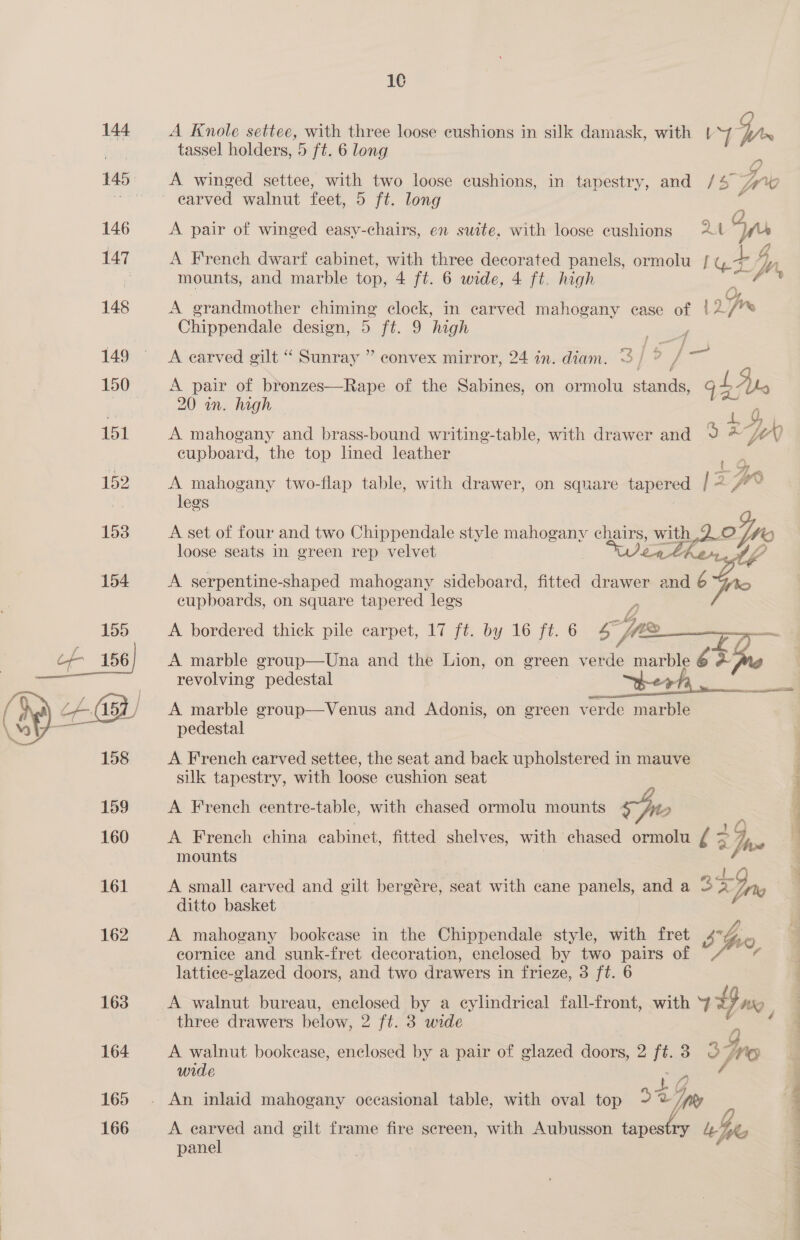 16
144 A Knole settee, with three loose cushions in silk damask, with 17 Gns
tassel holders, 5 ft. 6 long
145 A winged settee, with two loose cushions, in tapestry, and 15 Gns
carved walnut feet, 5 ft. long
146 A pair of winged easy-chairs, en suite, with loose cushions 21 Gns
147 A French dwarf cabinet, with three decorated panels, ormolu
mounts, and marble top, 4 ft. 6 wide, 4 ft. high
148 A grandmother chiming clock, in carved mahogany case of 12 Gns
Chippendale design, 5 ft. 9 high
149 A carved gilt “ Sunray ” convex mirror, 24 in. diam. 3/5/-
150 A pair of bronzes—Rape of the Sabines, on ormolu stands, 9½ Gns
20 in. high
151 A mahogany and brass-bound writing-table, with drawer and 3½ Gns
cupboard, the top lined leather
152 A mahogany two-flap table, with drawer, on square tapered
legs
153 A set of four and two Chippendale style mahogany chairs, with 20 Gns
loose seats in green rep velvet
154 A serpentine-shaped mahogany sideboard, fitted drawer and 6 Gns
cupboards, on square tapered legs
155 A bordered thick pile carpet, 17 ft. by 16 ft. 6
156 A marble group—Una and the Lion, on green verde marble 6½ Gns
revolving pedestal
157 A marble group—Venus and Adonis, on green verde marble
pedestal
158 A French carved settee, the seat and back upholstered in mauve
silk tapestry, with loose cushion seat
159 A French centre-table, with chased ormolu mounts 5 Gns
160 A French china cabinet, fitted shelves, with chased ormolu
mounts
161 A small carved and gilt bergére, seat with cane panels, and a 3½ Gns
ditto basket
162 A mahogany bookcase in the Chippendale style, with fret
cornice and sunk-fret decoration, enclosed by two pairs of
lattice-glazed doors, and two drawers in frieze, 3 ft. 6
163 A walnut bureau, enclosed by a cylindrical fall-front, with 7½ Gns
three drawers below, 2 ft. 3 wide
164 A walnut bookcase, enclosed by a pair of glazed doors, 2 ft. 3 3 Gns
wide
165 An inlaid mahogany occasional table, with oval top 3½ Gns
166 A carved and gilt frame fire screen, with Aubusson tapestry 4 Gns
panel